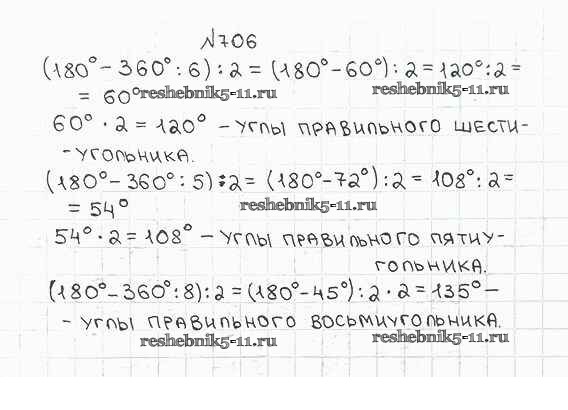 №706
(180° - 360° : 6) : 2 = (180° - 60°) : 2 = 120° : 2 =
= 60° reshebnik5-11.ru reshebnik5-11.ru
60° · 2 = 120° - УГЛЫ ПРАВИЛЬНОГО ШЕСТИ-
- УГОЛЬНИКА.
(180° - 360° : 5) : 2 = (180° - 72°) : 2 = 108° : 2 =
= 54° reshebnik5-11.ru
54° · 2 = 108° - УГЛЫ ПРАВИЛЬНОГО ПЯТИУ-
ГОЛЬНИКА.
(180° - 360° : 8) : 2 = (180° - 45°) : 2 · 2 = 135° -
- УГЛЫ ПРАВИЛЬНОГО ВОСЬМИУГОЛЬНИКА.
reshebnik5-11.ru reshebnik5-11.ru